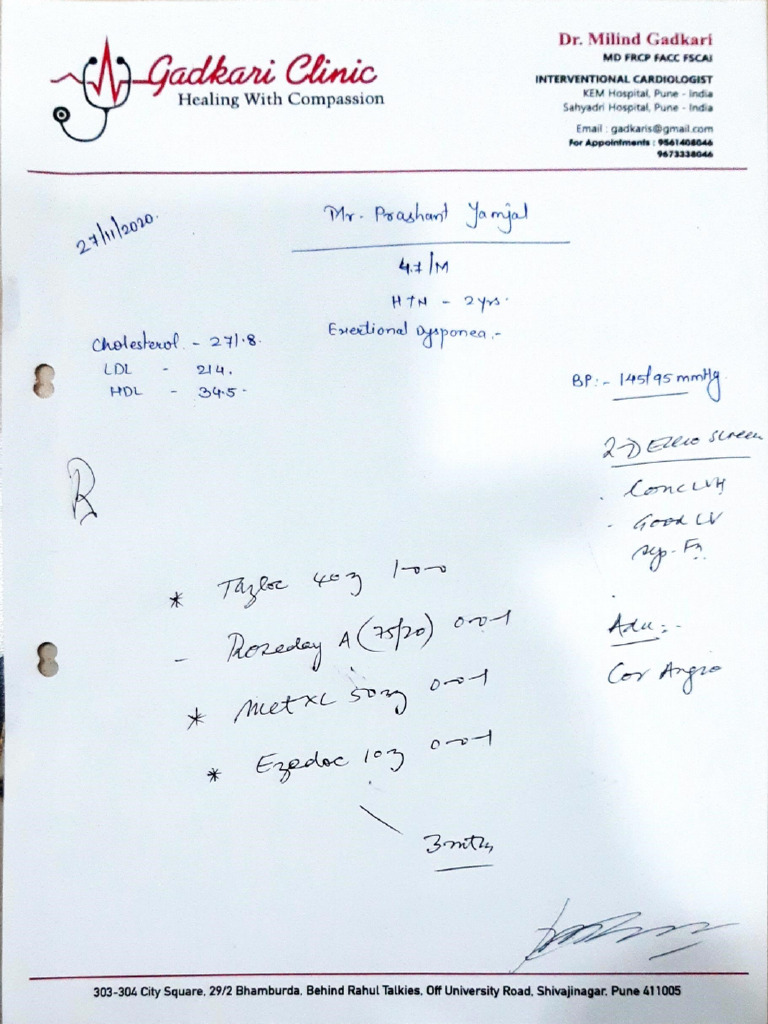 Gadkari Clinic
Healing With Compassion
Dr. Milind Gadkari
MD FRCP FACC FSCAI
INTERVENTIONAL CARDIOLOGIST
KEM Hospital, Pune - India
Sahyadri Hospital, Pune - India
Email : gadkaris@gmail.com
For Appointments : 9561408046
9673338046
27/11/2020.
Mr. Prashant Yamjal
47/M
HTN - 2 yrs.
Exertional Dysponea.-
Cholesterol. - 271.8.
LDL - 214.
HDL - 34.5.
BP:- 145/95 mmHg
2-D Echo Screen
. Conc LVH
- Good LV
Sys. Fn.
Adv:-
Cor Angio
R
* Tazloc 40mg 1-0-0
- Roseday A (75/20) 0-0-1
* Met XL 50mg 0-0-1
* Ezedoc 10mg 0-0-1
3 mths
303-304 City Square, 29/2 Bhamburda, Behind Rahul Talkies, Off University Road, Shivajinagar, Pune 411005